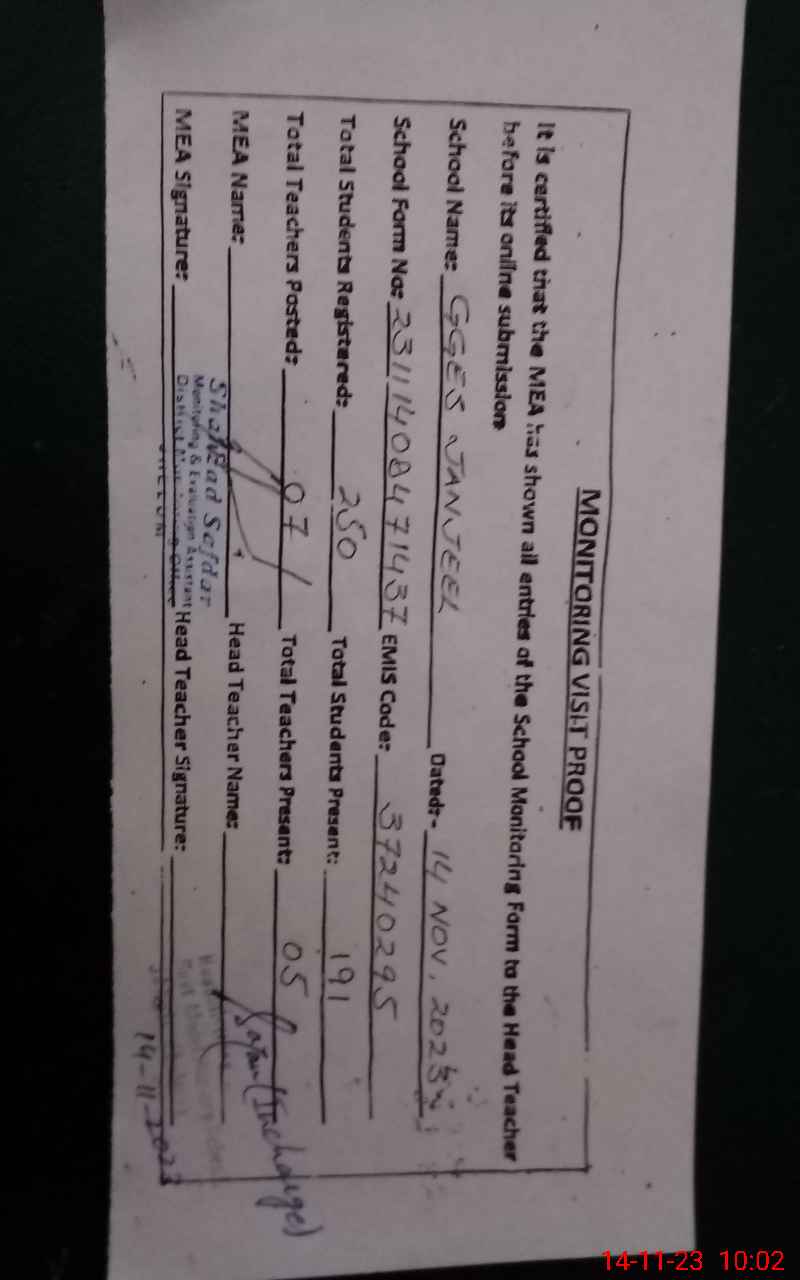 MONITORING VISIT PROOF
It is certified that the MEA has shown all entries of the School Monitoring Form to the Head Teacher
before its online submission
School Name: GGES JANJEEL Dated:- 14 NOV, 2023
School Form No: 23111408471437 EMIS Code: 37240295
Total Students Registered: 250 Total Students Present: 191
Total Teachers Posted: 07 Total Teachers Present: 05
MEA Name: Head Teacher Name: (Incharge)
Shahzad Safdar
Monitoring & Evaluation Assistant
District Monitoring Office
MEA Signature: Head Teacher Signature:
14-11-2023
14-11-23 10:02